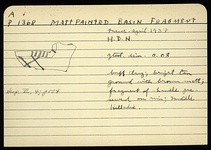 A
P 1368 MATTPAINTED BASIN FRAGMENT
March-April 1937
H.D.N.
gtst. dim. 0.08
buff clay; bright tan
ground with brown matt;
fragment of handle pre-
served on rim; Middle
Helladic